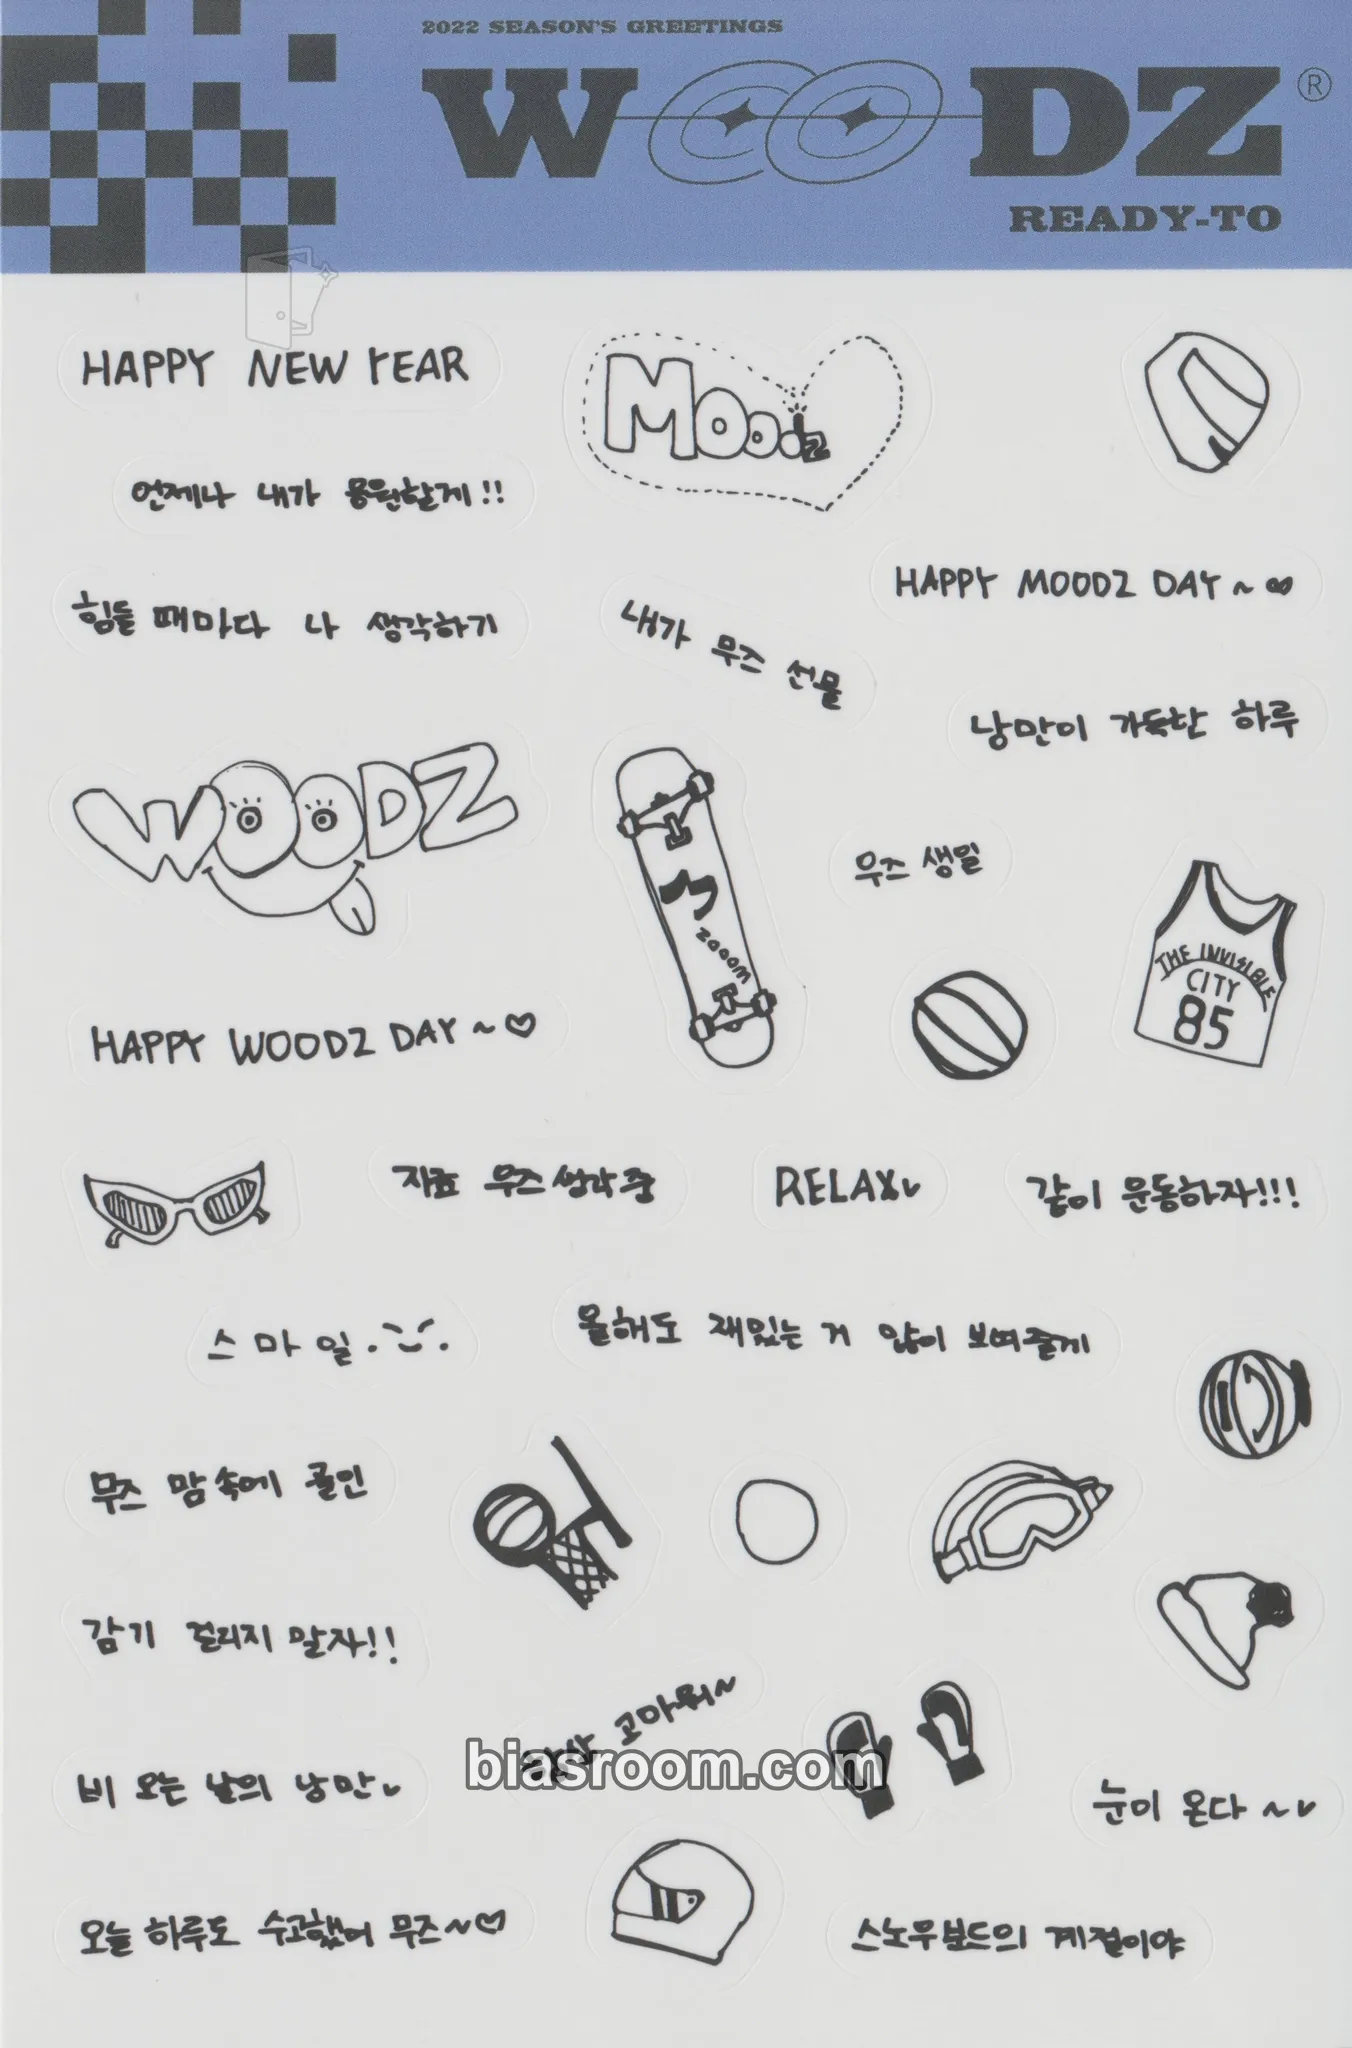 2022 SEASON'S GREETINGS
WOODZ®
READY-TO
HAPPY NEW YEAR
Moodz
언제나 내가 응원할게!!
HAPPY MOODZ DAY~∞
힘들 때마다 나 생각하기
내가 무즈 선물
낭만이 가득한 하루
WOODZ
zooom
우즈 생일
THE INVISIBLE
CITY
85
HAPPY WOODZ DAY~♡
지효 우즈 생각 중
RELAX
같이 운동하자!!!
스마일.
올해도 재밌는 거 많이 보여줄게
무즈 맘 속에 골인
감기 걸리지 말자!!
항상 고마워~
biasroom.com
비 오는 날의 낭만
눈이 온다~
오늘 하루도 수고했어 무즈~♡
스노우보드의 계절이야